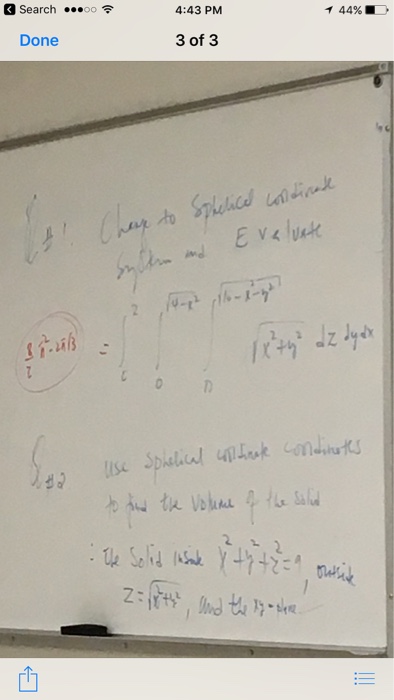 Search 4:43 PM 44%
Done 3 of 3
#1. Change to Spherical coordinate
System and Evaluate
= ∫ ∫ ∫ √x²+y² dz dy dx
2 √4-x²
0 0
#2 use spherical coordinates
to find the volume of the solid
: The Solid inside x²+y²+z²=9, outside
z=√x²+y², and the xy-plane